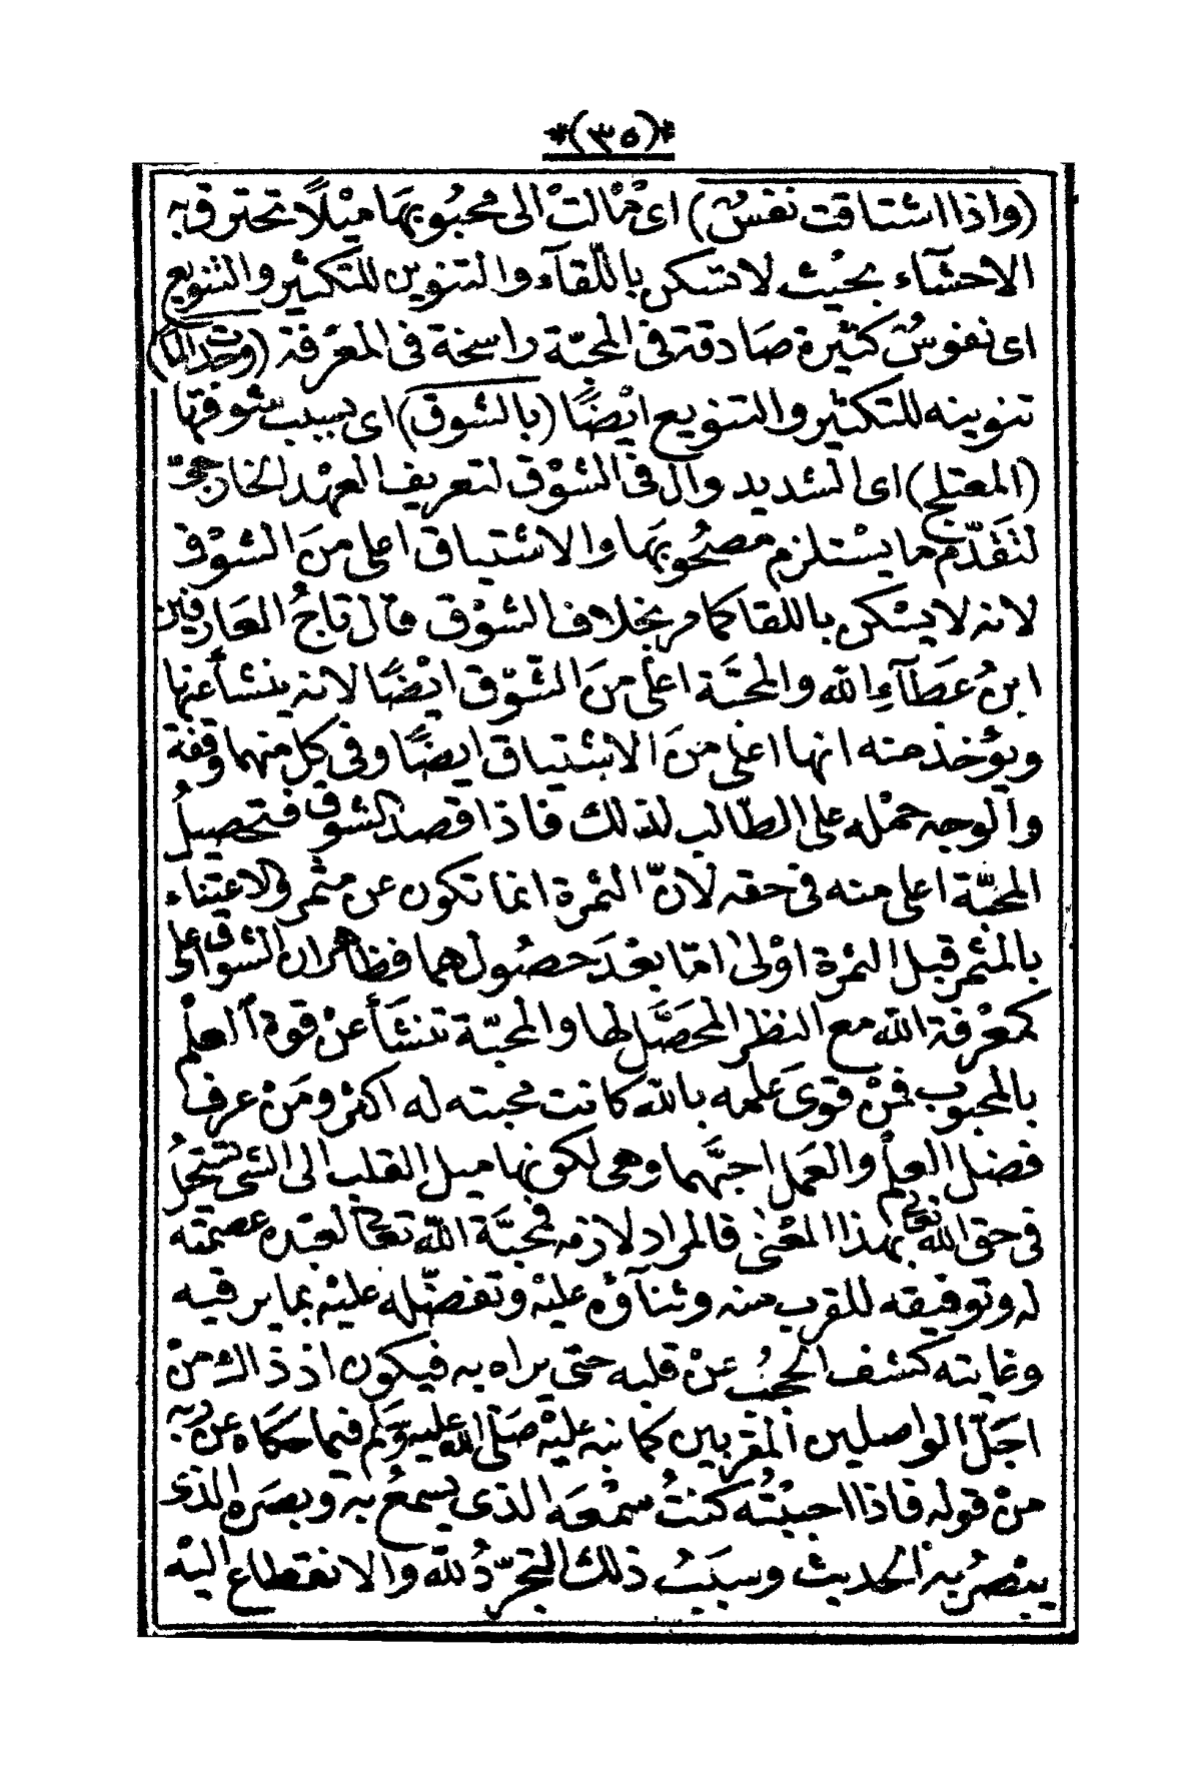 *(٣٥)*
(واذا اشتاقت نفسٌ) اى مَالتْ الى محبُوبهَا ميْلًا تحترق به
الاحشآء بحيْث لا تسكن باللّقآء والتنوين للتكثير والتنويع
اى نفوسٌ كثيرة صَادقة فى المحبّة راسخة فى المعْرفة (وحدا لها)
تنوينه للتكثير والتنويع ايْضًا (بالشوق) اى بسبب شوقها
(المعتلج) اى الشديد وال فى الشوْق لتعريف العهْد الخارجىّ
لتقَدّم ما يسْتلزم مصحُوبهَا والاشتياق اعلى منَ الشوْق
لانه لا يسْكن باللقا كما مر بخلاف الشوْق قال تاجُ العَارفين
ابنُ عَطَآءِ الله والمحبَّة اعلَى منَ الشّوْق ايْضًا لانه ينشأ عنها
ويؤْخذ منه انها اعْلى منَ الاشتياق ايضًا وفى كل منهما وقفة
والوجه حمْله على الطّالب لذلك فاذا قصد الشوق فتحصيلُ
المحبّة اعلى منه فى حقه لانّ الثمرة انما تكون عن مثمر والاعتناء
بالمثمر قبل الثمرة اوْلى امّا بعْدَ حصُولهما فظاهر ان الشوق اعلى
كمعْرفة الله مع النظر المحصَّل لها والمحبّة تنشَأ عنْ قوة العلْم
بالمحبُوب فمَنْ قوىَ علمه بالله كانت محبته له اكثر ومَنْ عرف
فضل العلْم والعَمل احبَّهما وهى لكونها ميل القلب الى الشى تستحيلُ
فى حق الله تعالى بهذا المعْنى فالمراد لازمه فمحبَّة الله تعالى لعَبْده عصمته
له وتوفيقه للقرب منه وثنآؤه عليْه وتفضّله عليْه بما يرقيه
وغايته كشف الحجُب عنْ قلبه حتى يراه به فيكون اذ ذاك منْ
اجَلّ الواصلين المقربين كما نبه عليْه صَلى الله عليه وسَلم فيما حكَاه عن ربه
منْ قوله فاذا احببْتُه كنتُ سمْعَه الذى يسمعُ به وبصَره الذى
يبْصرُ به الحَديث وسبَبُ ذلك التجرّدُ لله والانقطاع اليْه